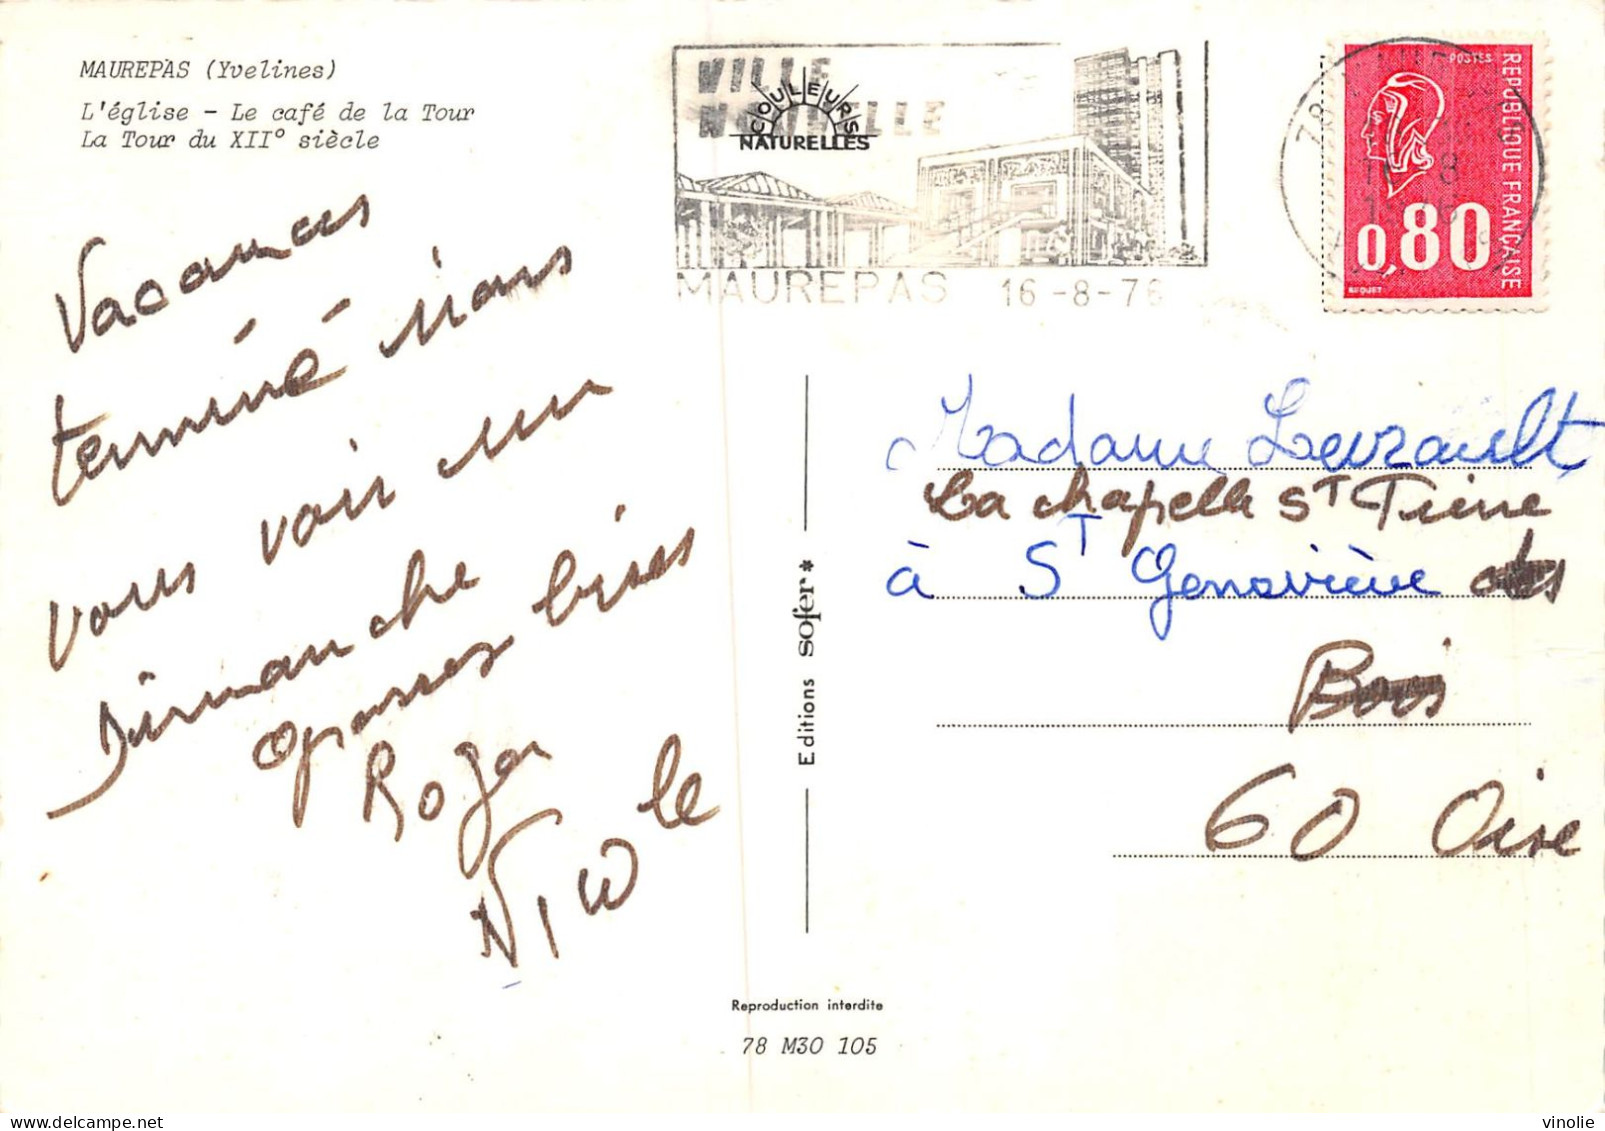 MAUREPAS (Yvelines)
L'église - Le café de la Tour
La Tour du XII° siècle
VILLE
NOUVELLE
COULEURS
NATURELLES
MAUREPAS 16-8-76
POSTES
REPUBLIQUE FRANÇAISE
0,80
BEQUET
78
16 8
1976
Vacances
terminé nous
vous voir un
Dimanche
grosses bises
Roger
Nicole
Editions sofer*
Madame Levrault
La chapelle ST Pierre
à ST Geneviève des
Bois
60 Oise
Reproduction interdite
78 M30 105
vinolie